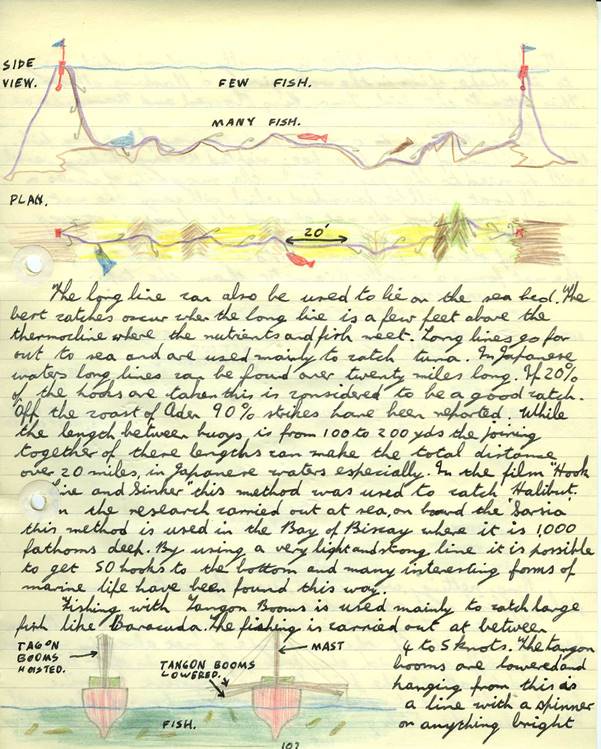 SIDE
VIEW.
FEW FISH.
MANY FISH.
PLAN.
20'
The long line can also be used to lie on the sea bed. The
best catches occur when the long line is a few feet above the
thermocline where the nutrients and fish meet. Long lines go far
out to sea and are used mainly to catch tuna. In Japanese
waters long lines can be found over twenty miles long. If 20%
of the hooks are taken this is considered to be a good catch.
Off the coast of Aden 90% strikes have been reported. While
the length between buoys is from 100 to 200 yds the joining
together of these lengths can make the total distance
over 20 miles, in Japanese waters especially. In the film "Hook
Line and Sinker" this method was used to catch Halibut.
In the research carried out at sea, on board the "Sarsia"
this method is used in the Bay of Biscay where it is 1,000
fathoms deep. By using a very light and strong line it is possible
to get 50 hooks to the bottom and many interesting forms of
marine life have been found this way.
Fishing with Tangon Booms is used mainly to catch large
fish like Baracuda. The fishing is carried out at between
4 to 5 knots. The tangon
booms are lowered and
hanging from this is
a line with a spinner
or anything bright
TAGON
BOOMS
HOISTED.
TANGON BOOMS
LOWERED.
MAST
FISH.